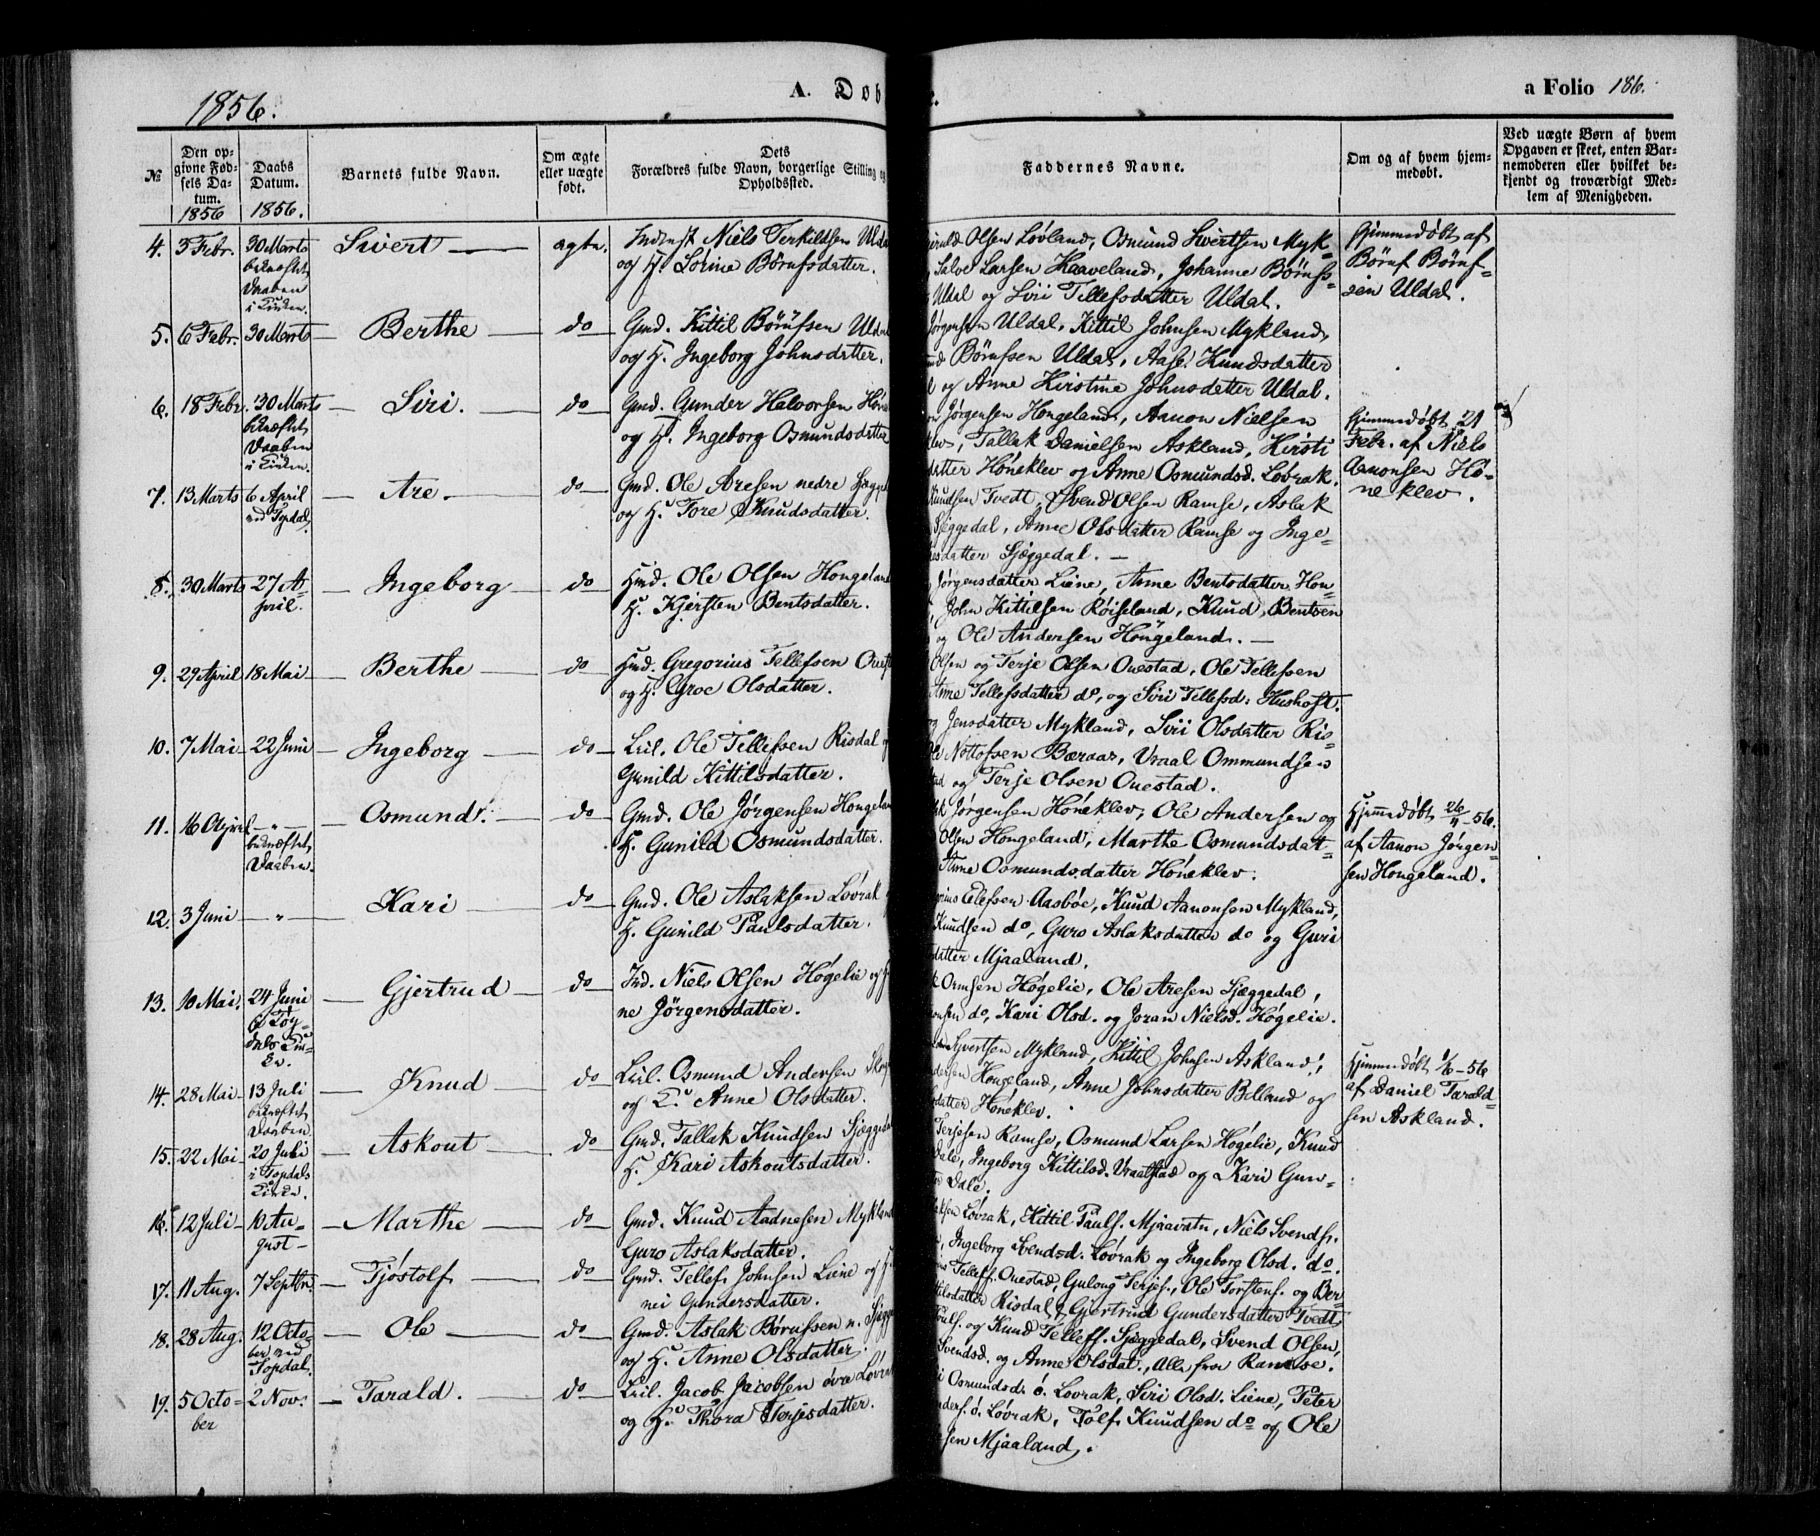 1856.
A. Døb
a Folio 186.
№
Den opgivne Fødsels Datum. 1856
Daabs Datum. 1856.
Barnets fulde Navn.
Om ægte eller uægte født.
Dets Forældres fulde Navn, borgerlige Stilling og Opholdssted.
Faddernes Navne.
Om og af hvem hjemmedøbt.
Ved uægte Børn af hvem Opgaven er skeet, enten Barnemoderen eller hvilket bekjendt og troværdigt Medlem af Menigheden.
4. 3 Febr. 30 Marts bekræftet Daaben i Kirken. Sivert ægte. Inderst Niels Terkildsen Uldal
og H. Lorine Børufsdatter.
Olsen Løvland, Osmund Sivertsen Myk-
Salve Larsen Haaveland, Johanne Børufs-
Uldal og Siri Tellefsdatter Uldal.
Hjemmedøbt af
Børuf Børuf-
sen Uldal.
5. 6 Febr. 30 Marts Berthe do Gmd. Kittil Børufsen Uldal
og H. Ingeborg Johnsdatter.
Jørgensen Uldal, Kittil Johnsen Mykland,
Børufsen Uldal, Aase Knudsdatter
og Anne Kirstine Johnsdatter Uldal.
6. 18 Febr. 30 Marts bekræftet Daaben i Kirken. Siri. do Gmd. Gunder Halvorsen Høne
og H. Ingeborg Osmundsdatter
Jørgensen Hongeland, Aanon Nielsen
Tallak Danielsen Askland, Kirsti
datter Høneklev og Anne Osmundsd. Løvrak.
Hjemmedøbt 21
Febr. af Niels
Aanonsen Hø-
neklev.
7. 13 Marts 6 April ved Topdal. Are do Gmd. Ole Aresen nedre Sjægge
og H. Tore Knudsdatter.
Knudsen Tvedt, Svend Olsen Ramse, Aslak
Sjeggedal, Anne Olsdatter Ramse og Inge-
datter Sjæggedal.
8. 30 Marts 27 April. Ingeborg do Hmd. Ole Olsen Hongeland
H. Kjersten Bentsdatter.
Jørgensdatter Liene, Anne Bentsdatter Hon-
John Kittilsen Røiseland, Knud Bentsen
og Ole Andersen Hongeland.
9. 29 April 18 Mai Berthe do Hmd. Gregorius Tellefsen Ouest
og H. Groe Olsdatter.
Olsen og Terje Olsen Ouestad, Ole Tellefsen
Anne Tellefsdatter do, og Siri Tellefsd: Hushoft.
10. 7 Mai 22 Juni Ingeborg do Leil. Ole Tellefsen Risdal
Gunild Kittilsdatter.
Jensdatter Mykland, Siri Olsdatter Ris-
Nottofsen Bæraas, Vraal Ommundsen
og Terje Olsen Ouestad.
11. 16 April " bekræftet Daaben. Osmund. do Gmd. Ole Jørgensen Hongeland
H. Gunild Osmundsdatter.
Jørgensen Høneklev, Ole Andersen og
Olsen Hongeland, Marthe Osmundsdat-
Anne Osmundsdatter Høneklev.
Hjemmedøbt 26/4-56.
af Aanon Jørgen-
sen Hongeland.
12. 3 Juni " Kari do Gmd. Ole Aslaksen Løvrak
H. Gunild Paulsdatter.
Elefsen Aasbøe, Knud Aanonsen Mykland,
Knudsen do, Guro Aslaksdatter do og Guri
datter Mjaaland.
13. 10 Mai. 24 Juni Gjertrud do Niels Olsen Høgelie og H
ne Jörgensdatter.
Ormsen Høgelie, Ole Aresen Sjæggedal,
do, Kari Olsd. og Joran Nielsd. Høgelie.
14. 28 Mai 13 Juli bekræftet Daaben. Knud do Leil. Osmund Andersen
og Anne Olsdatter.
Syvertsen Mykland, Kittil Johnsen Askland,
Hongeland, Anne Johnsdatter Belland og
datter Høneklev.
Hjemmedøbt 1/6-56
af Daniel Tarald-
sen Askland.
15. 22 Mai 20 Juli i Topdals Kirke. Askout do Gmd. Tallak Knudsen Sjæggedal
H. Kari Askoutsdatter.
Terjesen Ramse, Osmund Larsen Høgelie, Knud
Dale, Ingeborg Kittilsd. Vraalstad og Kari Gun-
Dale.
16. 12 Juli 10 August Marthe do Gmd. Knud Aadnesen Mykland
Guro Aslaksdatter.
Løvrak, Kittil Paulf. Mjaavatn, Niels Svendsr.
Ingeborg Svendsd. Løvrak og Ingeborg Olsd. do.
17. 11 Aug. 7 Septbr. Tjøstolf do Gmd. Tellef Johnsen Liene og H
nei Gundersdatter.
Tellef. Ouestad, Guloug Terjef., Ole Torstenf. og Ber-
datter Risdal & Gjertrud Gundersdatter Tvedt
18. 28 Aug. 12 October ved Topdal. Ole do Gmd. Aslak Børufsen n. Sjægge
og H. Anne Olsdatter.
og Knud Tellef. Sjæggedal, Svend Olsen,
Svendsd. og Anne Olsdat., Alle fra Ramse.
19. 5 October 2 Nov. Tarald. do Leil. Jacob Jacobsen øvre Løvrak
og H. Thora Terjesdatter.
Osmundsd. ø. Løvrak, Siri Olsd. Liene, Peter
ø. Løvrak, Tolf Knudsen do og Ole
sen Mjaaland.